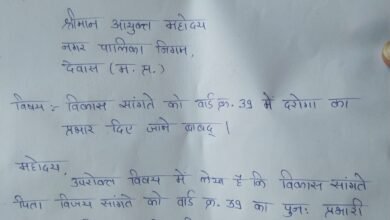 श्रीमान आयुक्त महोदय
नगर पालिका निगम,
देवास (म.प्र.)
विषय :- विकास सांगते को वार्ड क्र. 39 में दरोगा का
प्रभार दिए जाने बाबद् |
महोदय,
उपरोक्त विषय में लेख है कि विकास सांगते
पिता विजय सांगते को वार्ड क्र. 39 का पुनः प्रभारी